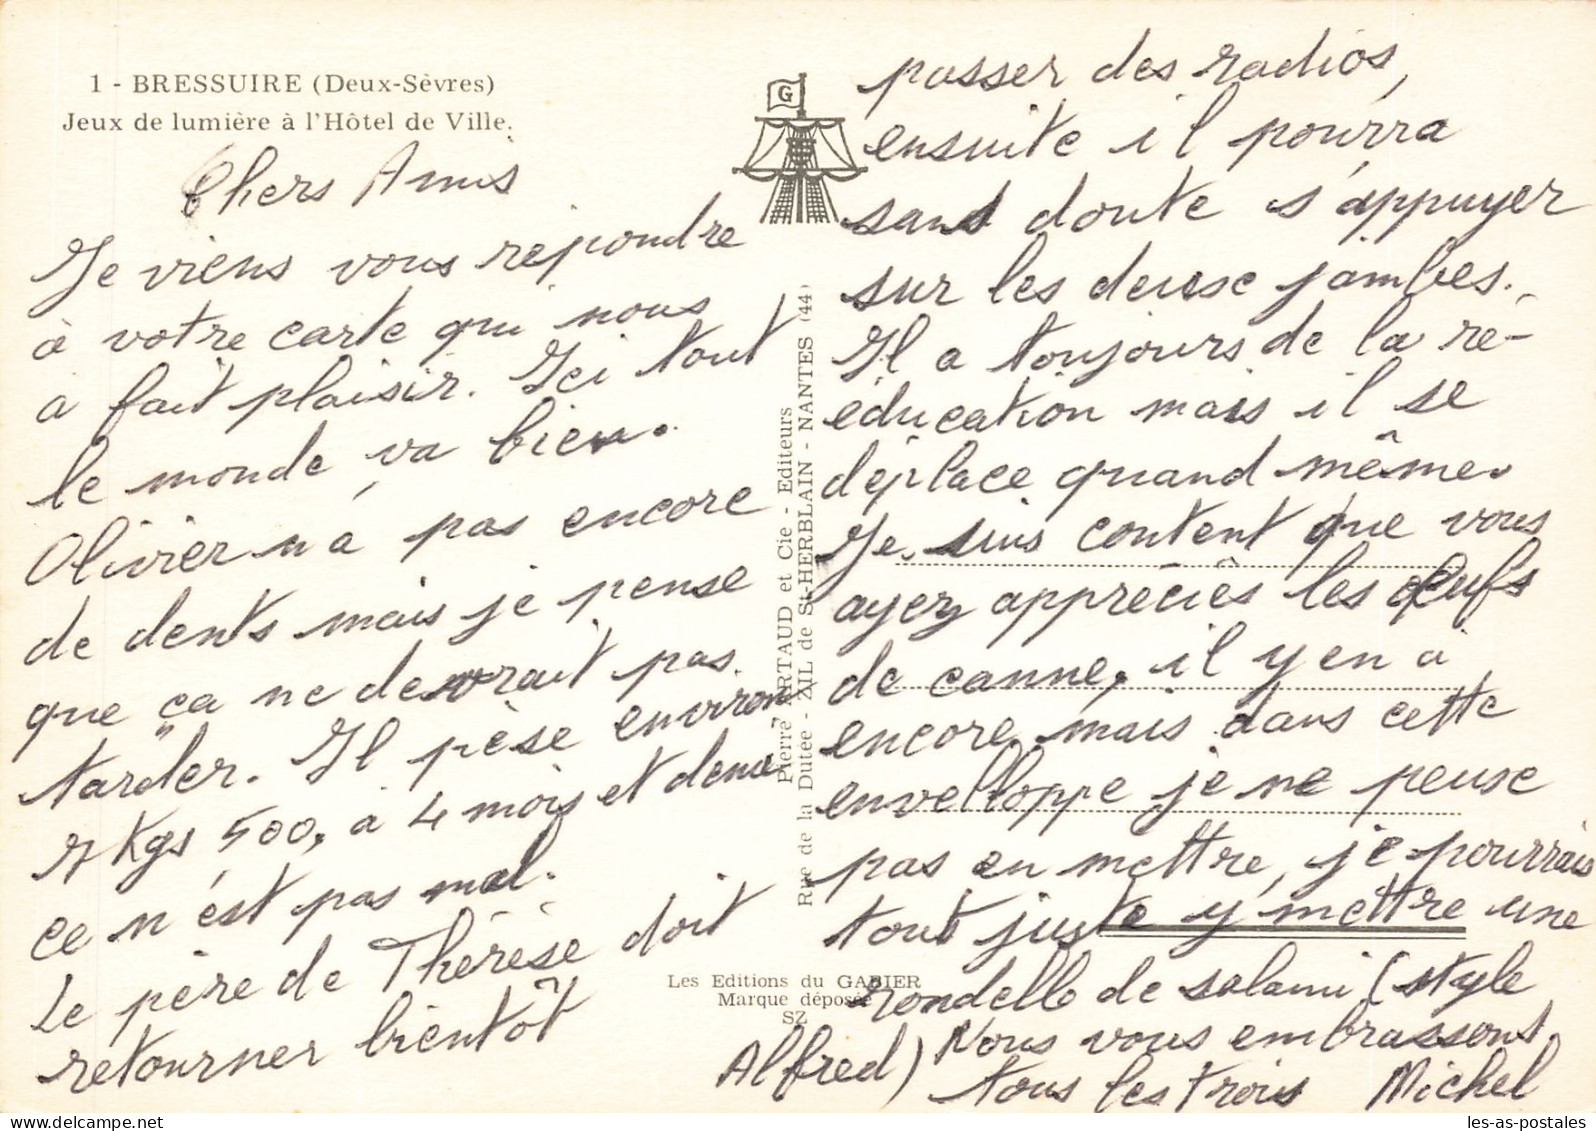 1 - BRESSUIRE (Deux-Sèvres)
Jeux de lumière à l'Hôtel de Ville.
Chers Amis
Je viens vous répondre
à votre carte qui nous
a fait plaisir. Ici tout
le monde va bien.
Olivier n'a pas encore
de dents mais je pense
que ça ne devrait pas
tarder. Il pèse environ
7 Kgs 500, à 4 mois et demi
ce n'est pas mal.
Le père de Thérèse doit
retourner bientôt
G
Pierre ARTAUD et Cie - Editeurs
Rue de la Dutée - ZIL de St-HERBLAIN - NANTES (44)
Les Editions du GABIER
Marque déposée
SZ
passer des radios,
ensuite il pourra
sans doute s'appuyer
sur les deux jambes.
Il a toujours de la ré-
éducation mais il se
déplace quand même.
Je suis content que vous
ayez appréciés les œufs
de canne, il y en a
encore mais dans cette
envelloppe je ne peuse
pas en mettre, je pourrais
tout juste y mettre une
rondelle de salami (style
Alfred) Nous vous embrassons
tous les trois Michel
les-as-postales.com